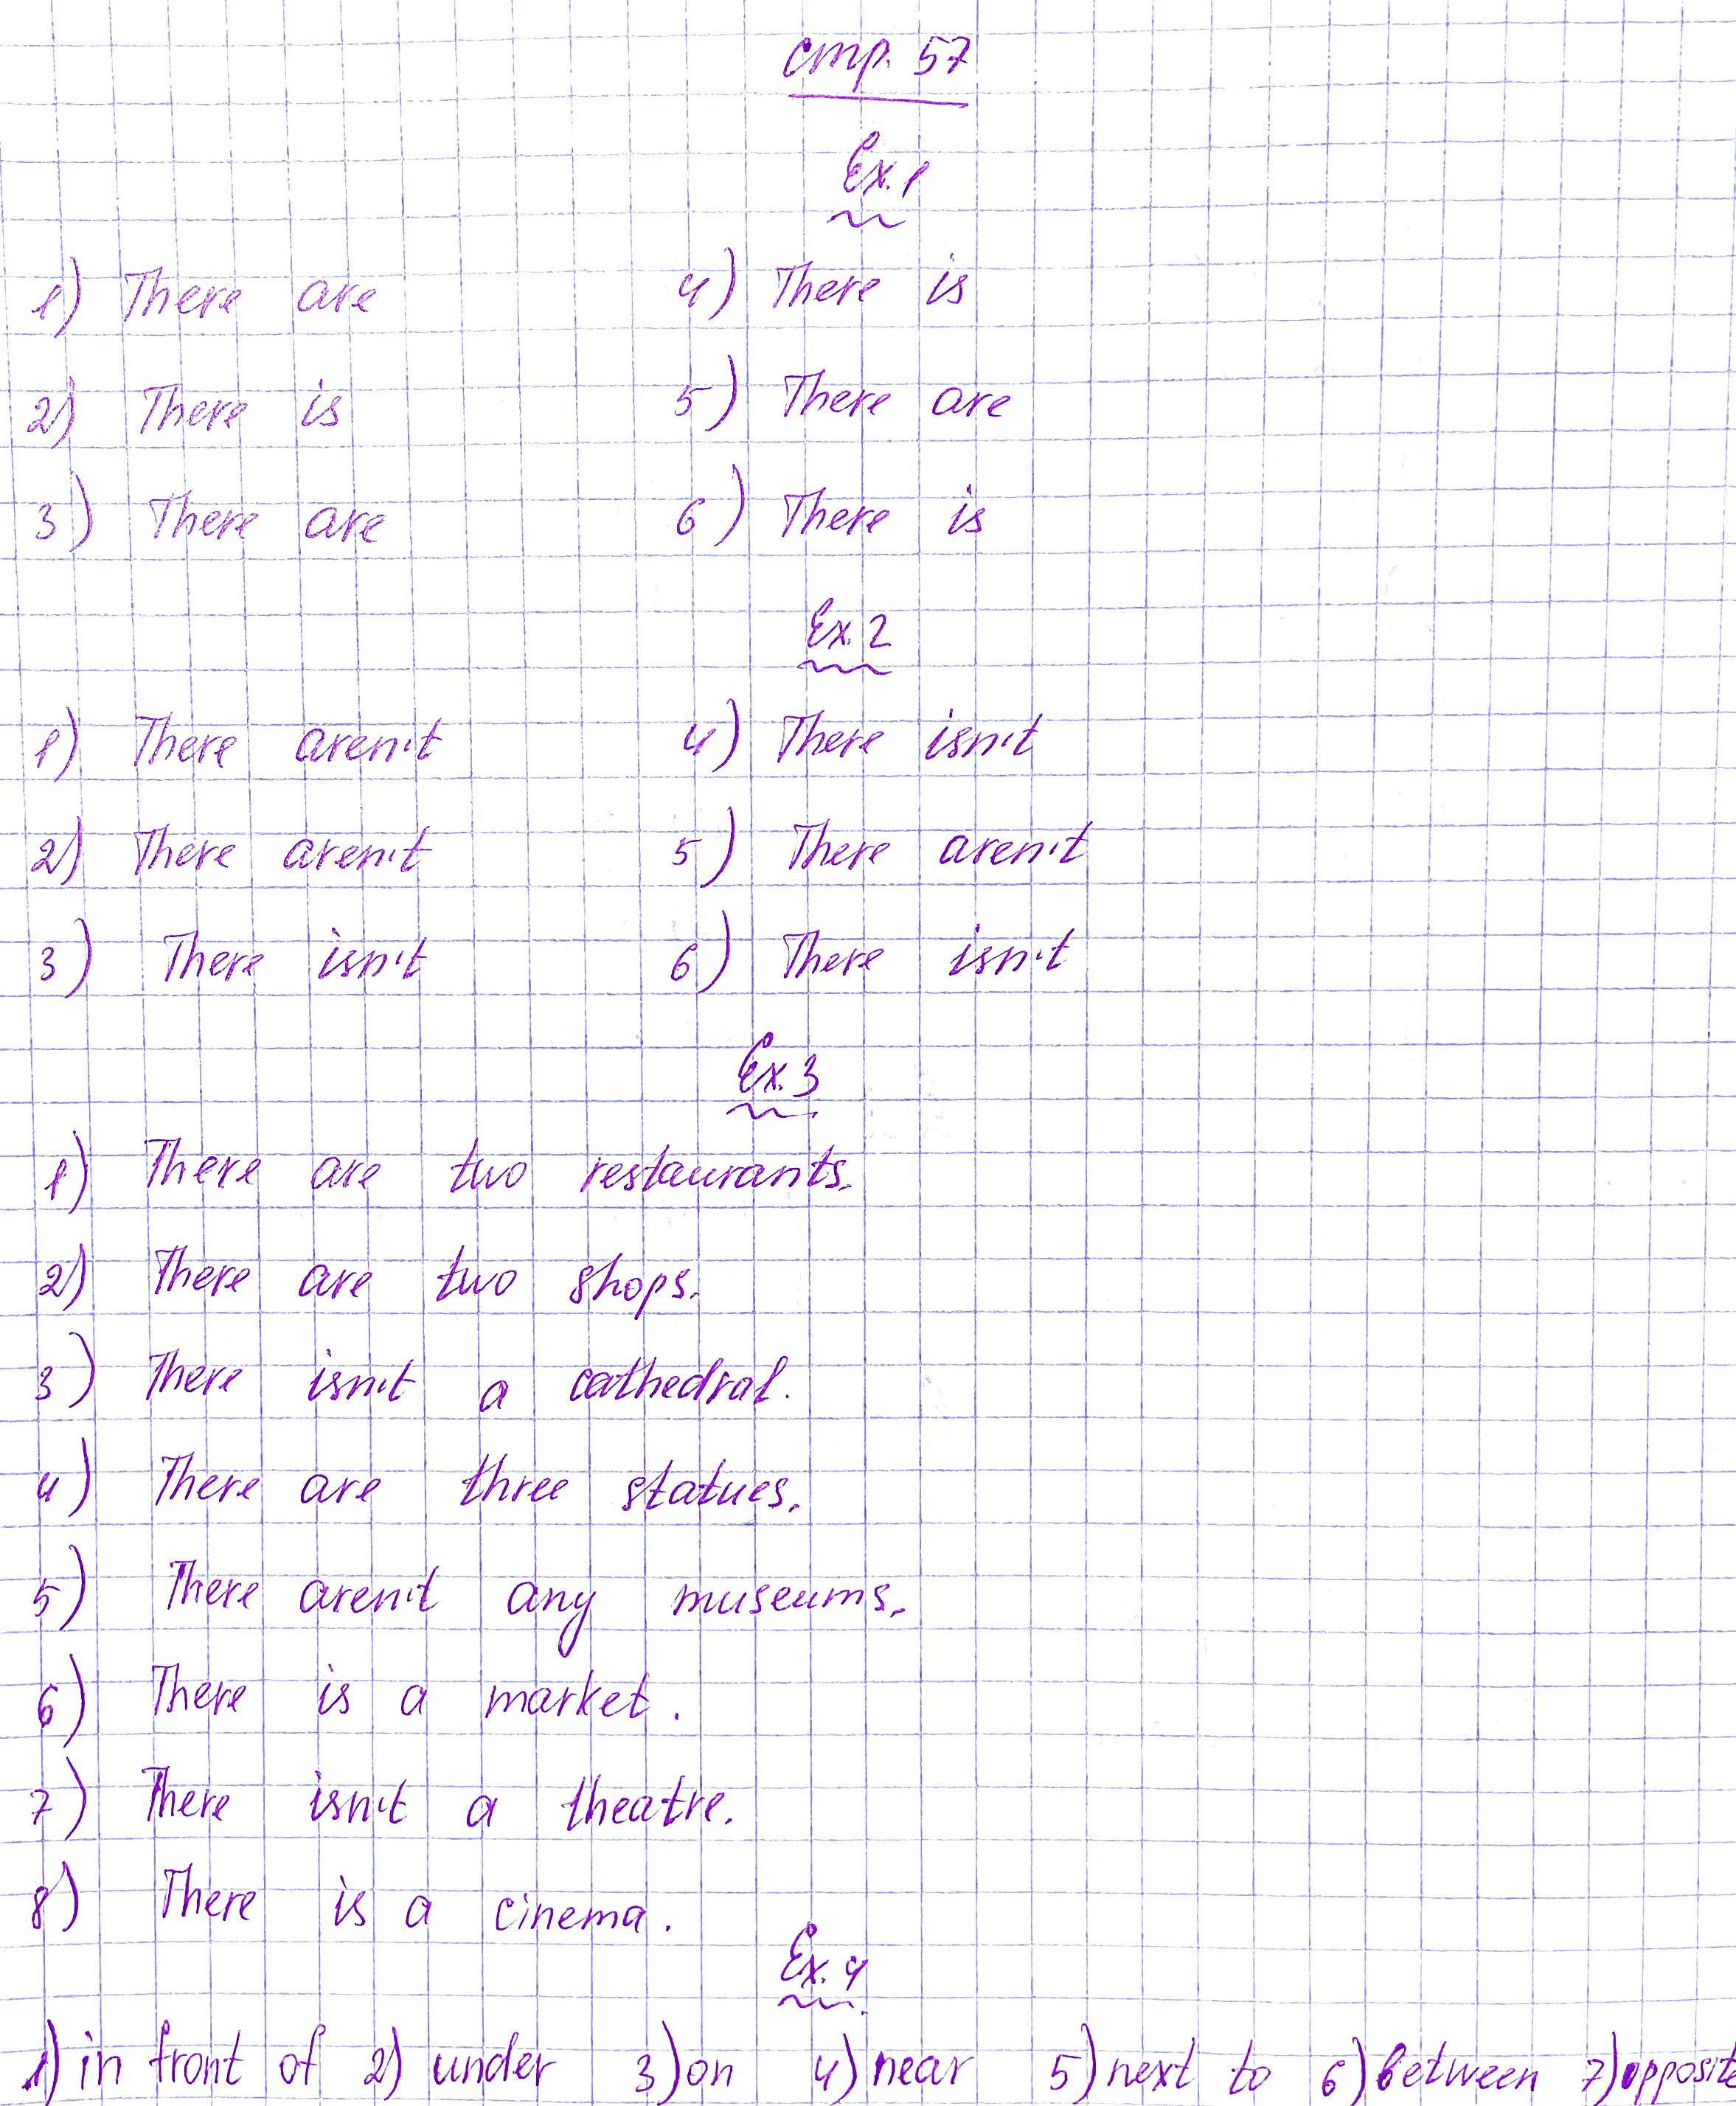 стр. 57
Ex. 1
1) There are 4) There is
2) There is 5) There are
3) There are 6) There is
Ex. 2
1) There aren't 4) There isn't
2) There aren't 5) There aren't
3) There isn't 6) There isn't
Ex. 3
1) There are two restaurants.
2) There are two shops.
3) There isn't a cathedral.
4) There are three statues.
5) There aren't any museums.
6) There is a market.
7) There isn't a theatre.
8) There is a cinema.
Ex. 4
1) in front of 2) under 3) on 4) near 5) next to 6) between 7) opposite